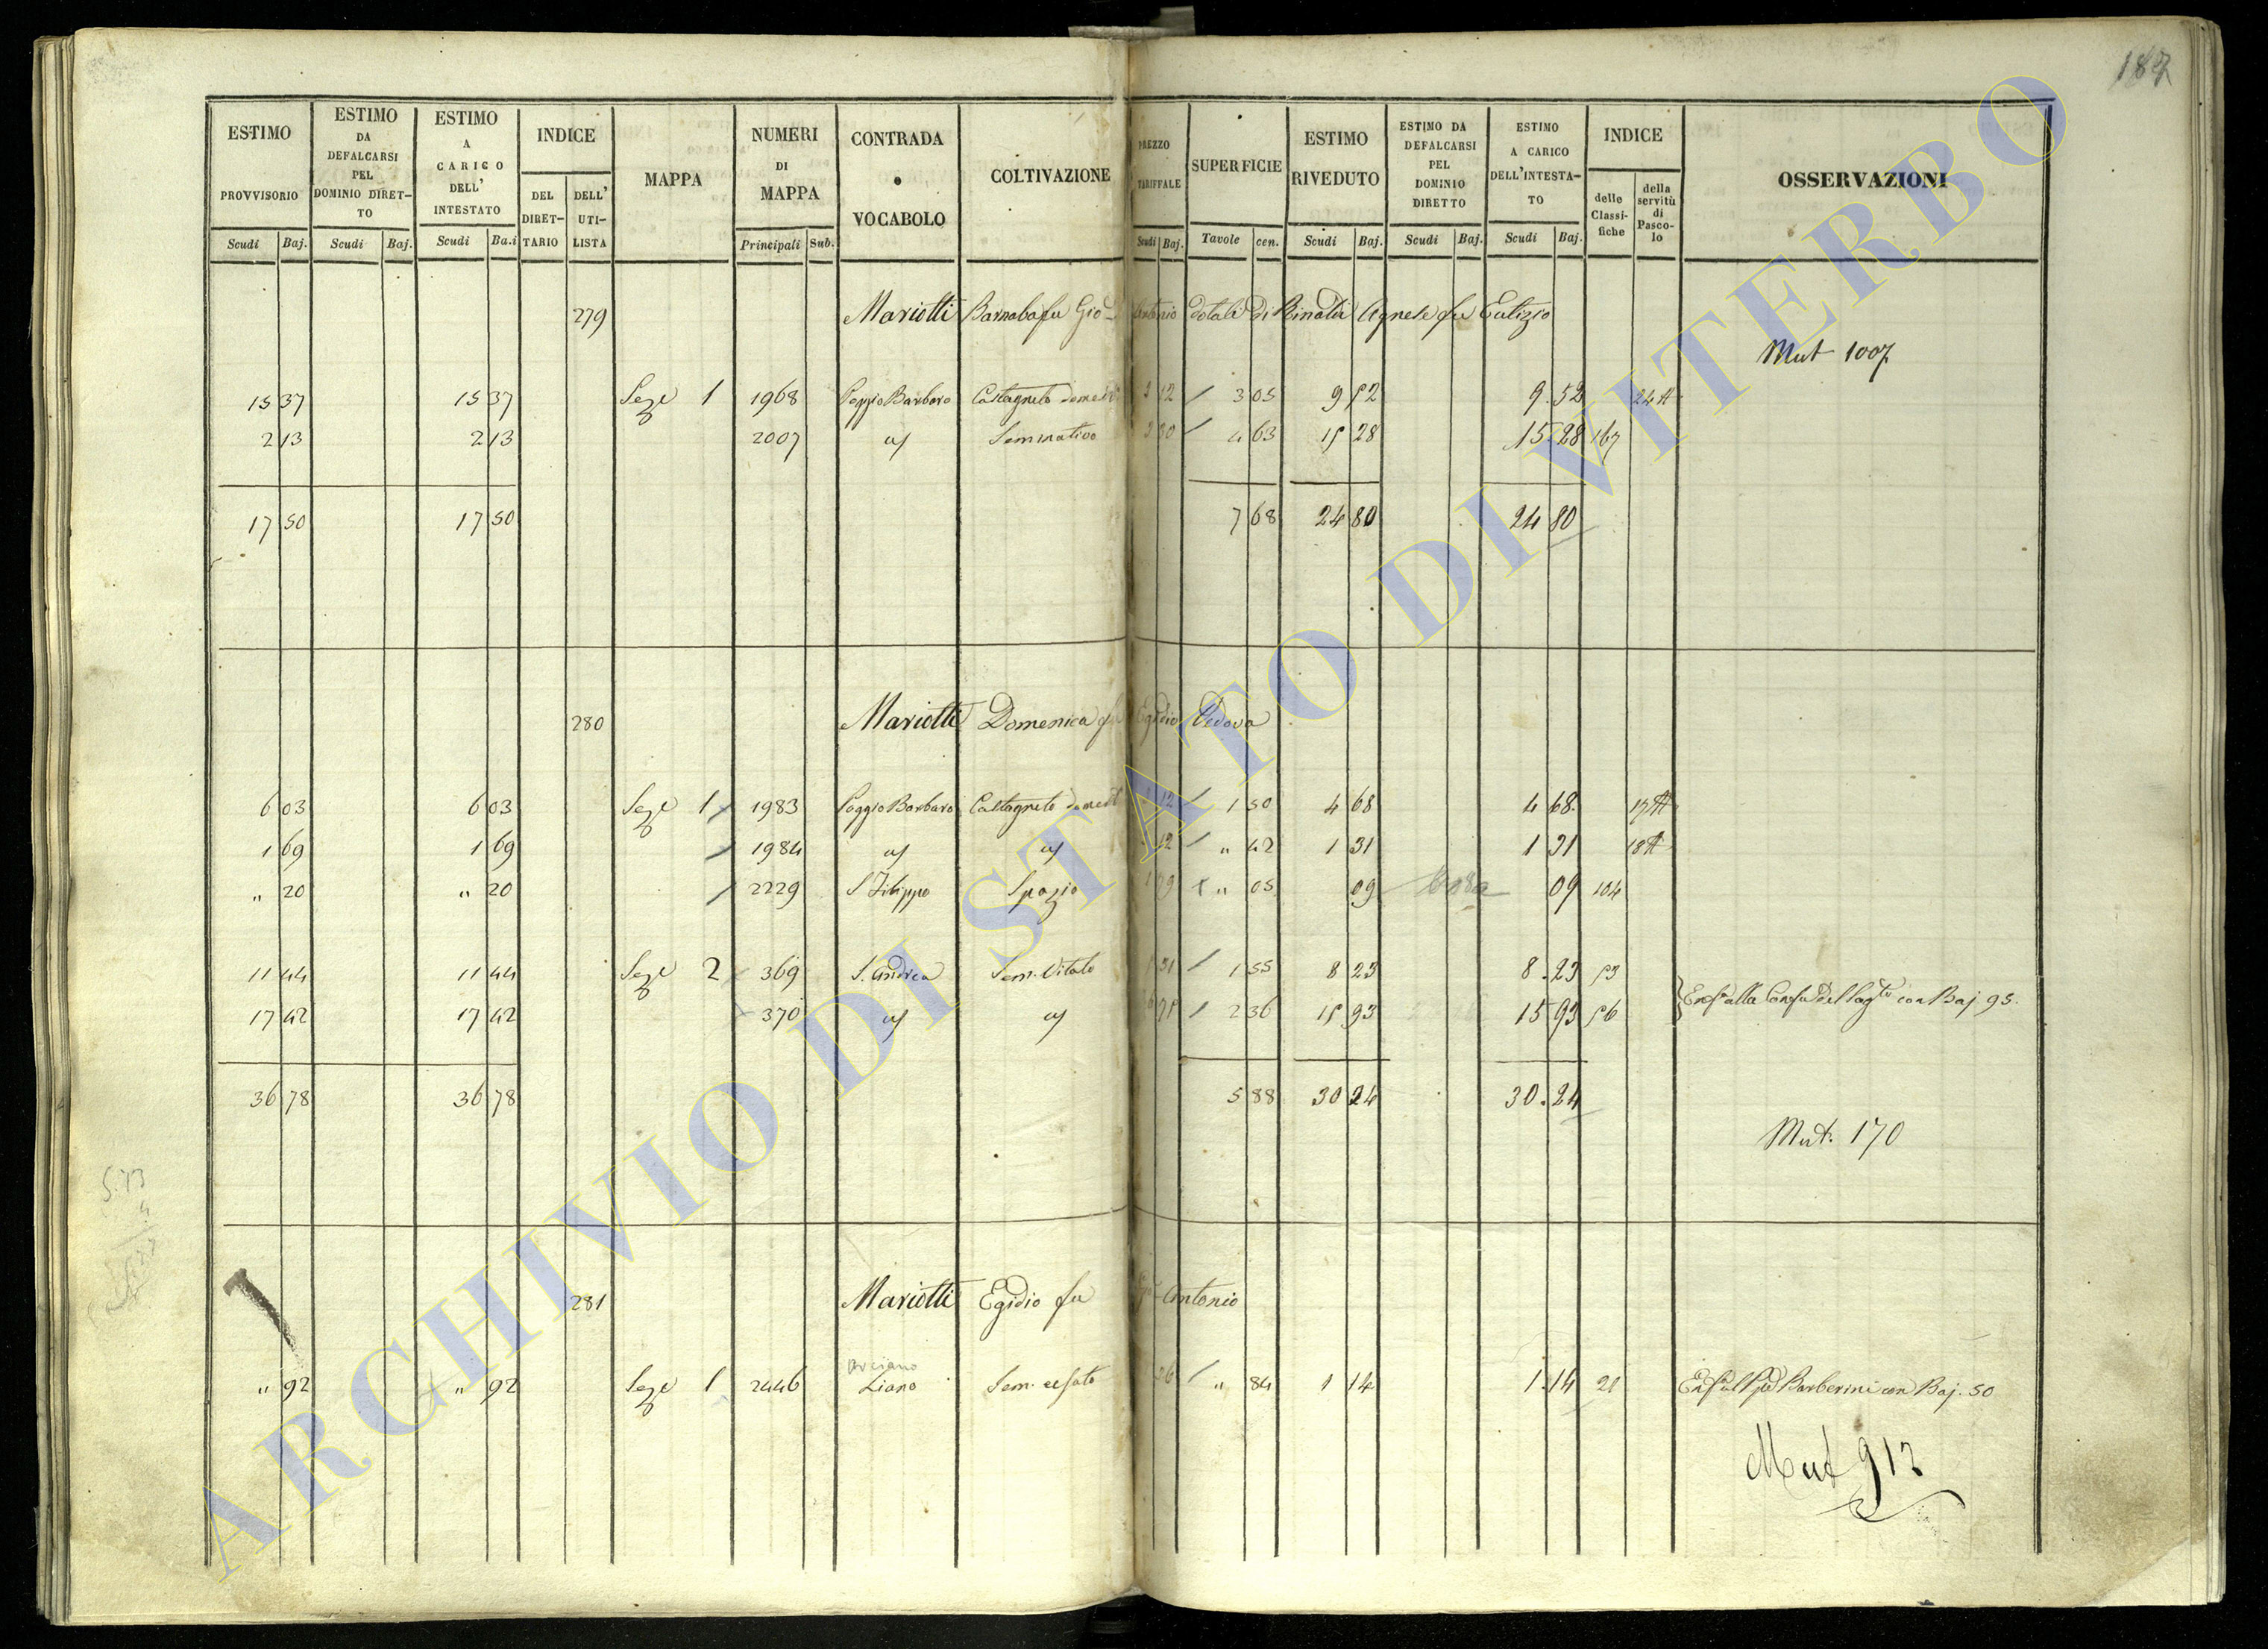 187
ESTIMO PROVVISORIO Scudi Baj. ESTIMO DA DEFALCARSI PEL DOMINIO DIRETTO Scudi Baj. ESTIMO A CARICO DELL' INTESTATO Scudi Ba.i INDICE DEL DIRETTARIO DELL' UTILISTA MAPPA NUMERI DI MAPPA Principali Sub. CONTRADA o VOCABOLO COLTIVAZIONE PREZZO TARIFFALE Scudi Baj. SUPERFICIE Tavole cen. ESTIMO RIVEDUTO Scudi Baj. ESTIMO DA DEFALCARSI PEL DOMINIO DIRETTO Scudi Baj. ESTIMO A CARICO DELL'INTESTATO Scudi Baj. INDICE delle Classifiche della servitù di Pascolo OSSERVAZIONI
279 Mariotti Barnaba fu Gio Antonio dotale di Rinaldi Agnese fu Eutizio
Mut 1007
15 37 15 37 Seze 1 1968 Poggio Barbaro Castagneto 12 3 05 9 52 9.52 24
2 13 2 13 2007 Seminativo 4 63 15 28 15 28 167
17 50 17 50 7 68 24 80 24 80
280 Mariotti Domenica fu Egidio Vedova
6 03 6 03 Seze 1 1983 Poggio Barbaro Castagneto 12 1 50 4 68 4 68. 17
1 69 1 69 1984 12 " 42 1 31 1 31 18
" 20 " 20 2229 S Filippo Spazio 1 79 " 05 09 09 104
11 44 11 44 Seze 2 369 S. Andrea Sem. Vitato 31 1 55 8 23 8.23 53
17 42 17 42 370 2 36 15 93 15 93 56 con Baj 95.
36 78 36 78 5 88 30 24 30.24
Mut. 170
281 Mariotti Egidio fu Antonio
" 92 " 92 Seze 1 2446 Liano Sem. " 84 1 14 1.14 21 Barberini con Baj. 50
Mut 912
ARCHIVIO DI STATO DI VITERBO